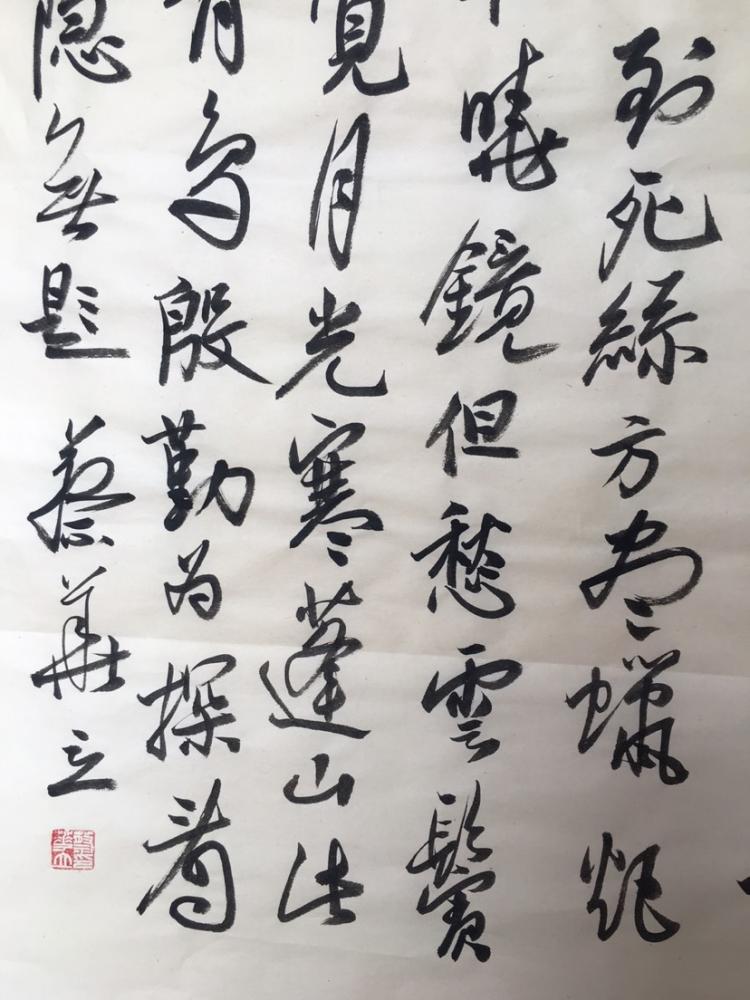 到死絲方盡蠟炬
曉鏡但愁雲鬢
覓月光寒蓬山此
青鳥殷勤为探看
隱無題 華立